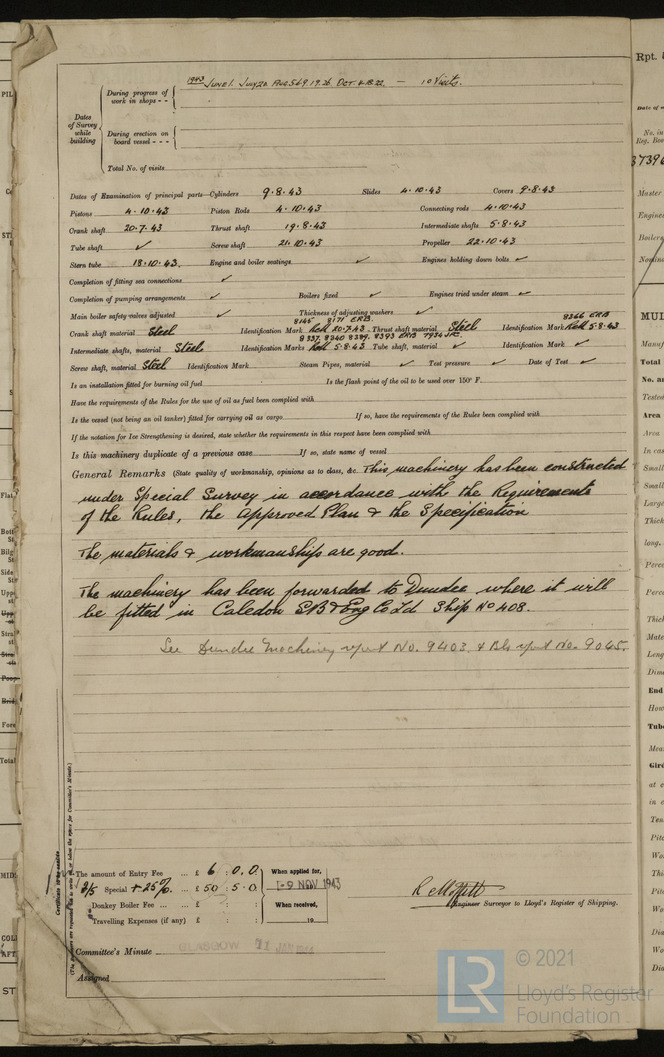 1943 June 1. July 20 Aug. 5.6.9.19.26. Oct. 4.18.22. — 10 Visits.
Dates of Survey while building
During progress of work in shops - -
During erection on board vessel - - -
Total No. of visits
Dates of Examination of principal parts—Cylinders 9.8.43 Slides 4.10.43 Covers 9.8.43
Pistons 4.10.43 Piston Rods 4.10.43 Connecting rods 4.10.43
Crank shaft 20.7.43 Thrust shaft 19.8.43 Intermediate shafts 5.8.43
Tube shaft ✓ Screw shaft 21.10.43 Propeller 22.10.43
Stern tube 18.10.43. Engine and boiler seatings ✓ Engines holding down bolts ✓
Completion of fitting sea connections ✓
Completion of pumping arrangements ✓ Boilers fixed ✓ Engines tried under steam ✓
Main boiler safety valves adjusted ✓ Thickness of adjusting washers ✓
8145 8171 ERB. 8366 ERB
Crank shaft material Steel Identification Mark 20.7.43 Thrust shaft material Steel Identification Mark 5.8.43
8337, 8340 8389, 8393 ERB
Intermediate shafts, material Steel Identification Marks 5.8.43 Tube shaft, material ✓ Identification Mark ✓
Screw shaft, material Steel Identification Mark Steam Pipes, material ✓ Test pressure ✓ Date of Test ✓
Is an installation fitted for burning oil fuel Is the flash point of the oil to be used over 150° F.
Have the requirements of the Rules for the use of oil as fuel been complied with
Is the vessel (not being an oil tanker) fitted for carrying oil as cargo If so, have the requirements of the Rules been complied with
If the notation for Ice Strengthening is desired, state whether the requirements in this respect have been complied with
Is this machinery duplicate of a previous case If so, state name of vessel
General Remarks (State quality of workmanship, opinions as to class, &c. This machinery has been constructed
under Special Survey in accordance with the Requirements
of the Rules, the approved Plan & the Specification
The materials & workmanship are good.
The machinery has been forwarded to Dundee where it will
be fitted in Caledon SB & Eng Co Ld Ship No 408.
See Dundee Machinery report No. 9403 & Bls report No. 9045.
The amount of Entry Fee ... £ 6 : 0 . 0 When applied for,
3/5 Special + 25% ... £ 50 : 5 . 0 -9 NOV 1943
Donkey Boiler Fee ... ... £ : : When received,
Travelling Expenses (if any) £ : : 19
Engineer Surveyor to Lloyd's Register of Shipping.
Committee's Minute GLASGOW 11 JAN
Assigned
LR © 2021
Lloyd's Register
Foundation
Rpt.
MUL